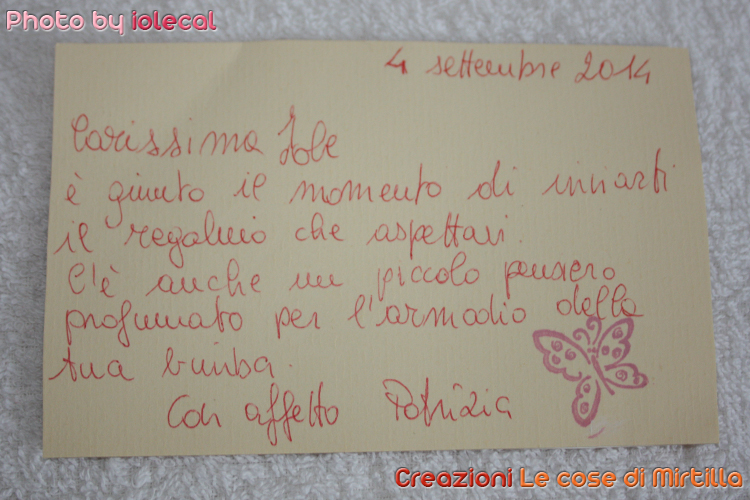 Photo by iolecal
4 settembre 2014
Carissima Iole
è giunto il momento di inviarti
il regalino che aspettavi.
C'è anche un piccolo pensiero
profumato per l'armadio della
tua bimba.
Con affetto Patrizia
Creazioni Le cose di Mirtilla